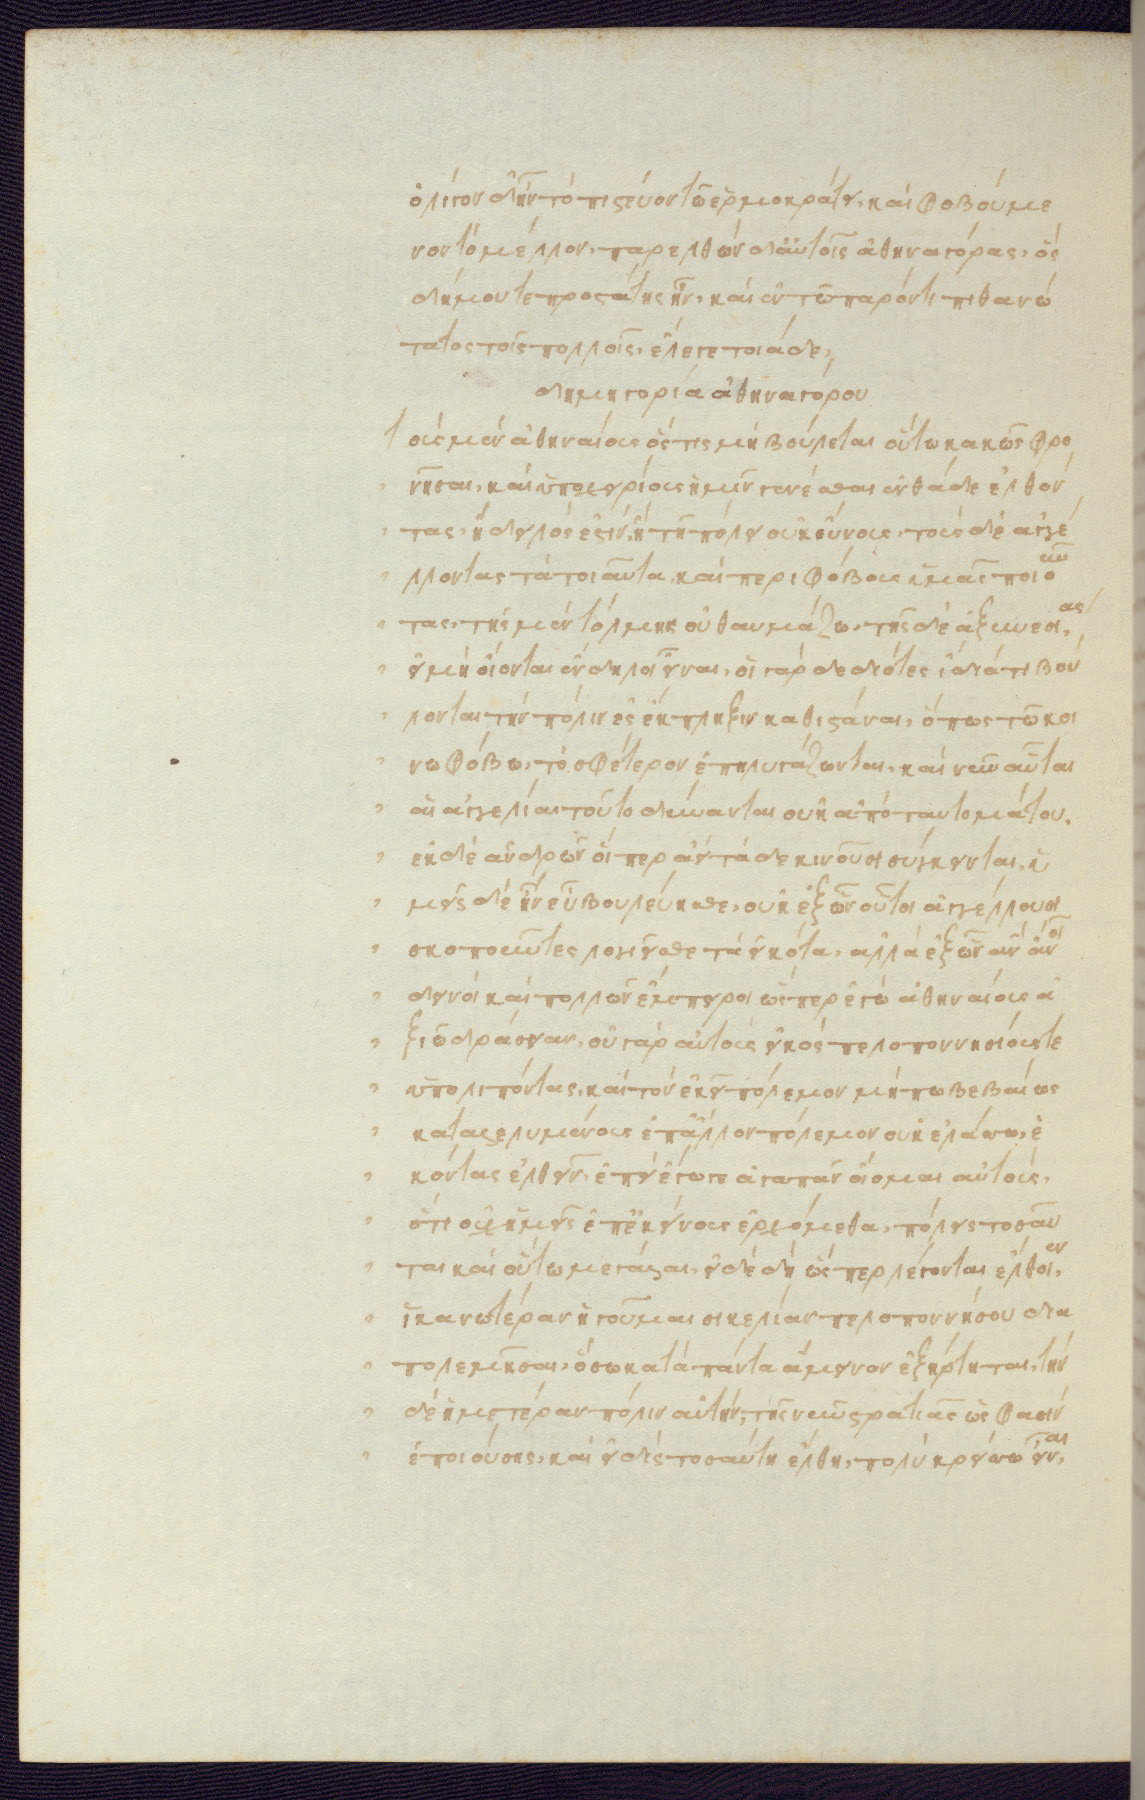 ὀλίγον δ' ἦν τὸ πιστεῦον τῶ ἑρμοκράτει, καὶ φοβούμε
νον τὸ μέλλον, παρελθὼν δ' αὐτοῖς ἀθηναγόρας, ὃς
δήμου τε προστάτης ἦν, καὶ ἐν τῶ παρόντι πιθανώ
τατος τοῖς πολλοῖς, ἔλεγε τοιάδε,
δημηγορία ἀθηναγόρου
τοὺς μὲν ἀθηναίους ὅστις μὴ βούλεται οὕτω κακῶς φρο
νῆσαι, καὶ ὑποχειρίους ἡμῖν γενέσθαι ἐνθάδε ἐλθόν
τας, ἢ δειλός ἐστιν, ἢ τῆ πόλει οὐκ εὔνους, τοὺς δὲ ἀγγέ
λλοντας τὰ τοιαῦτα, καὶ περιφόβους ὑμᾶς ποιοῦν
τας, τῆς μὲν τόλμης οὐ θαυμάζω, τῆς δὲ ἀξυνεσίας,
εἰ μὴ οἴονται ἔνδηλοι εἶναι, οἱ γὰρ δεδιότες ἰδία τι βού
λονται τὴν πόλιν ἐς ἔκπληξιν καθιστάναι, ὅπως τῶ κοι
νῶ φόβω, τὸ σφέτερον ἐπηλυγάζωνται, καὶ νῦν αὗται
αἱ ἀγγελίαι τοῦτο δύνανται οὐκ ἀπὸ ταυτομάτου,
ἐκ δὲ ἀνδρῶν οἵπερ ἀεὶ τάδε κινοῦσι σύγκεινται, ὑ
μεῖς δὲ ἢν εὖ βουλεύησθε, οὐκ ἐξ ὧν οὗτοι ἀγγέλλουσι
σκοποῦντες λογιεῖσθε τὰ εἰκότα, ἀλλὰ ἐξ ὧν ἂν ἄνοι
δεινοὶ καὶ πολλῶν ἔμπειροι ὥσπερ ἐγὼ ἀθηναίους ἀ
ξιῶ δράσειαν, οὐ γὰρ αὐτοὺς εἰκὸς πελοποννησίους τε
ὑπολιπόντας, καὶ τὸν ἐκεῖ πόλεμον μήπω βεβαίως
καταλελυμένους ἐπ' ἄλλον πόλεμον οὐκ ἐλάσσω, ἑ
κόντας ἐλθεῖν, ἐπεὶ ἔγωγε ἀγαπᾶν οἴομαι αὐτούς,
ὅτι οὐχ ἡμεῖς ἐπ' ἐκείνους ἐρχόμεθα, πόλεις τοσαῦ
ται καὶ οὕτω μεγάλαι, εἰ δὲ δὴ ὥσπερ λέγονται ἔλθοιεν,
ἱκανωτέραν ἡγοῦμαι σικελίαν πελοποννήσου δια
πολεμῆσαι, ὅσω κατὰ πάντα ἄμεινον ἐξήρτηται, τὴν
δὲ ἡμετέραν πόλιν αὐτὴν, τῆς νῦν στρατιᾶς ὥς φασιν
ἐπιούσης, καὶ εἰ δὶς τοσαύτη ἔλθη, πολὺ κρείσσω εἶναι,